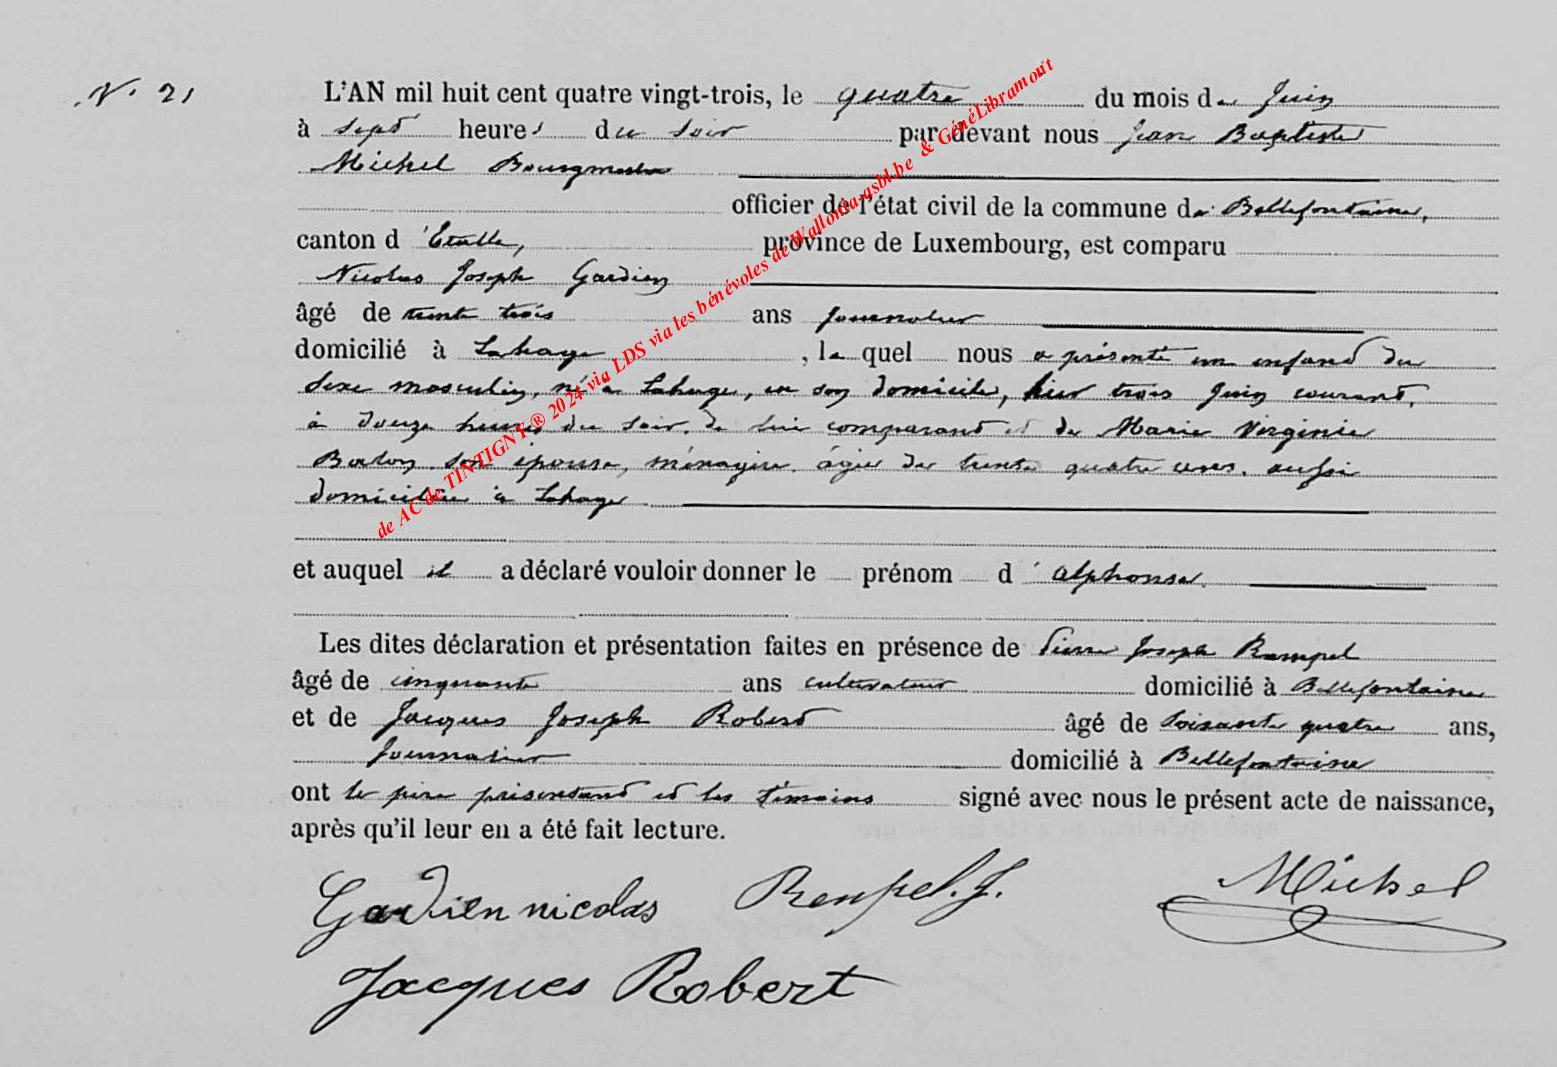 N. 21
L'AN mil huit cent quatre vingt-trois, le quatre du mois de Juin
à sept heures du soir par devant nous Jean Baptiste
Michel Bourgmestre
officier de l'état civil de la commune de Bellefontaine,
canton d'Etalle, province de Luxembourg, est comparu
Nicolas Joseph Gardien
âgé de trente trois ans journalier
domicilié à Lahage, le quel nous a présenté un enfant du
sexe masculin, né à Lahage, en son domicile, hier trois Juin courant,
à douze heures du soir, de lui comparant et de Marie Virginie
son épouse, ménagère, âgée de trente quatre ans, aussi
domiciliée à Lahage
et auquel il a déclaré vouloir donner le prénom d'Alphonse.
Les dites déclaration et présentation faites en présence de Pierre Joseph Rempel
âgé de cinquante ans cultivateur domicilié à Bellefontaine
et de Jacques Joseph Robert âgé de soixante quatre ans,
journalier domicilié à Bellefontaine
ont le père présentant et les témoins signé avec nous le présent acte de naissance,
après qu'il leur en a été fait lecture.
Gardien nicolas Rempel. J. Michel
Jacques Robert
de AC de TINTIGNY ® 2024 via LDS via les bénévoles de Wallonia-asbl.be & GénéLibramont